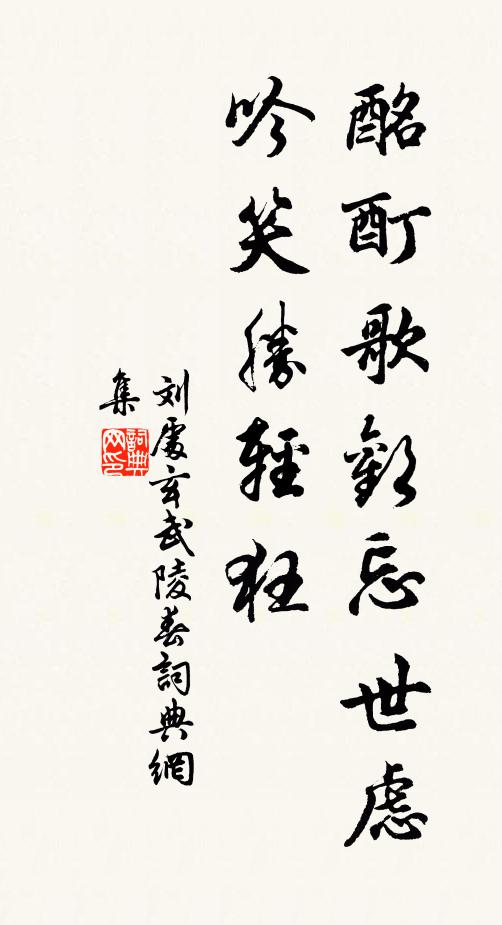 酩酊歌歡忘世慮
吟笑勝輕狂
刘處玄武陵春詞典網
集
詞典
网印